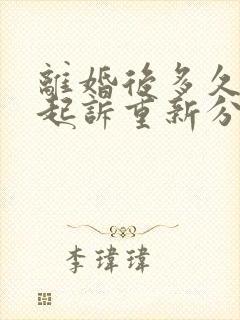 離婚後多久
起訴重新分
李瑋瑋